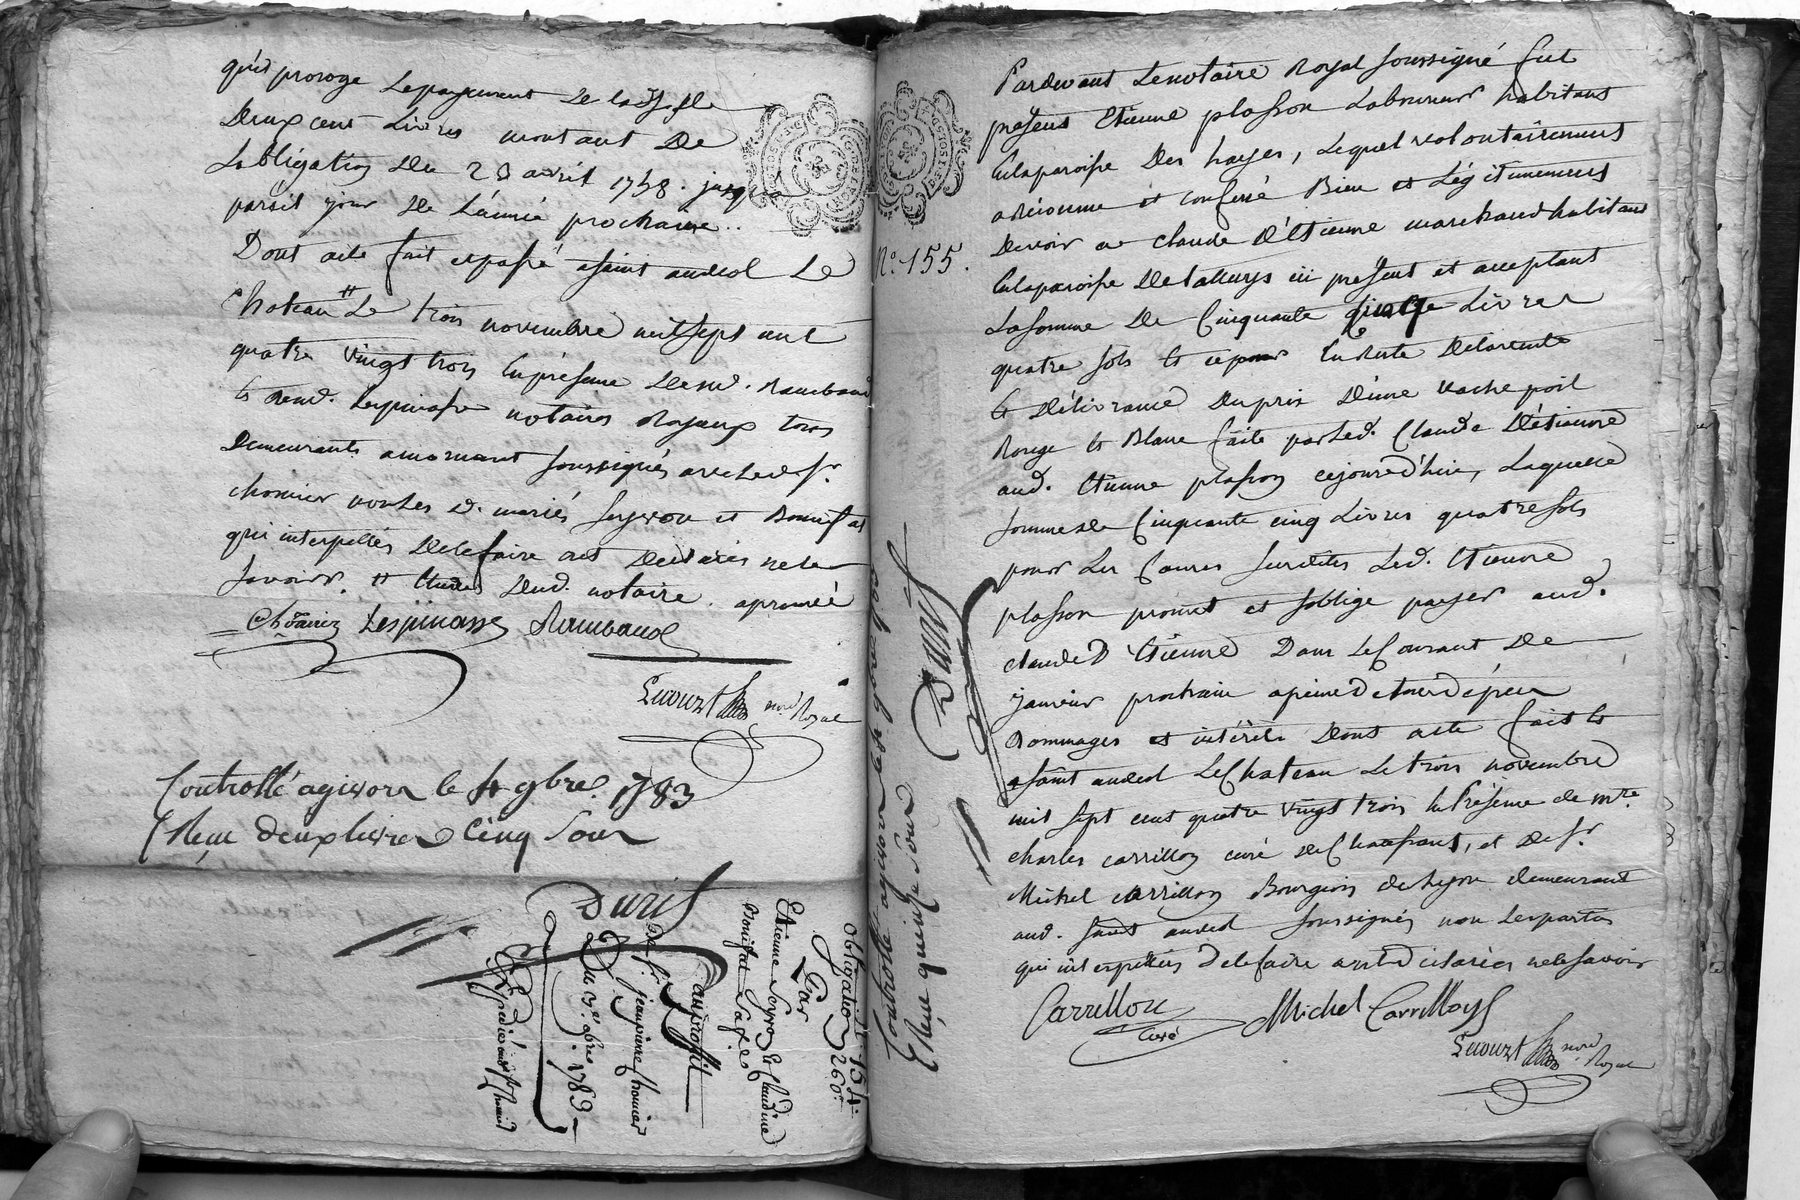 qu'il proroge le payement de la
Deux cent Livres montant De
L'obligation du 23 avril 1758. jusqu'a
pareil jour de L'année prochaine..
Dont acte fait et passé a saint andeol Le
Chateau # Le trois novembre mil sept cent
quatre vingt trois En présence de me. Rambaud
et dem. Lespinasse notaires Royaux tous
Demeurants a mornant soussignés avec led. sr.
chomier non les d. mariés seyvon et Bonnefat
qui interpellés De le faire ont Declarés ne le
savoir. # dud. notaire. aprouvé
Chomier Lespinasse Rambaud
no.re Royal
Controllé a givors le 4 9bre. 1783
Reçu deux livres cinq sous
Duris
Obligation
154.
26
Par
Etienne Seyvon et Claudine
Bonifat
Au profit
De sr. jean pierre Chomier
Du 3e. 9bre 1783
Expedié aud. sr. Chomier
No. 155.
Pardevant Le notaire Royal soussigné fut
présent Etienne plasson Laboureur habitant
En la paroisse Des hayes, Lequel volontairement
a reconnu et confessé Bien et Légitimement
Devoir a Claude D'Etienne marchand habitant
En la paroisse De taluys ici présent et acceptant
La somme De Cinquante cinq Livres
quatre sols Et ce pour En Reste De la vente
Et Délivrance Du prix D'une vache poil
Rouge Et Blanc faite par led. Claude D'étienne
aud. Etienne plasson cejourd'hui, Laquelle
somme De Cinquante cinq Livres quatre sols
pour Les Causes susdites Led. Etienne
plasson promet et s'oblige payer aud.
claude D'Etienne Dans Le Courant De
janvier prochain a peine de tous dépens
Dommages et intérêts Dont acte fait Et
a saint andeol Le Chateau Le trois novembre
mil sept cent quatre vingt trois En Présence de mre.
charles carrillon curé de Chaussant, et De sr.
Michel carrillon Bourgeois de Lyon demeurant
aud. saint andeol soussignés non Les parties
qui interpellées De le faire ont déclarées ne le savoir
Carrillon
curé
Michel Carrillon
no.re Royal
Controllé a givors le 4 9bre 1783
Reçu quinze sous Duris